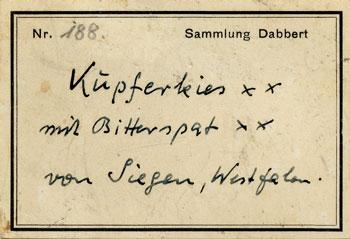 Nr. 188. Sammlung Dabbert
Kupferkies x x
mit Bitterspat x x
von Siegen, Westfalen.